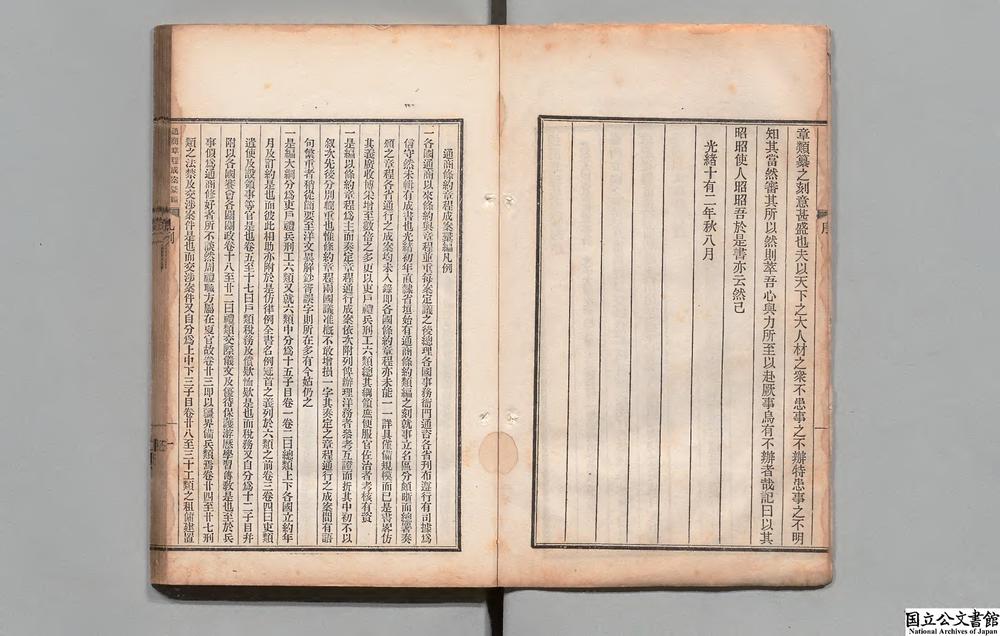 章類纂之刻意甚盛也夫以天下之大人材之衆不患事之不辦特患事之不明
知其當然審其所以然則萃吾心與力所至以赴厥事烏有不辦者哉記曰以其
昭昭使人昭昭吾於是書亦云然已
光緒十有二年秋八月
序
通商條約章程成案彙編凡例
一各國通商以來條約與章程並重每案定議之後總理各國事務衙門通咨各省刊布遵行有司據爲
信守然未輯有成書也光緒初年直隸省垣始有通商條約類編之刻就事立名區分頗晰而總署奏
頒之章程各省通行之成案均未入錄即各國條約章程亦未能一一詳具僅備規模而已是書畧仿
其義廣收博采增至數倍之多更以吏戶禮兵刑工六類總其綱領庶便服官佐治者考核有資
一是編以條約章程爲主而奏定章程通行成案依次附列俾辦理洋務者參考互證而折其中初不以
叙次先後分別輕重也惟條約章程兩國議准槪不敢增損一字其奏定之章程通行之成案間有語
句繁重者稍從簡要至洋文異解鈔胥誤字則所在多有今姑仍之
一是編大綱分爲吏戶禮兵刑工六類又就六類中分爲十五子目卷一卷二曰總類上下各國立約年
月及訂約是也而彼此相助亦附於是仿律例全書名例冠首之義列於六類之前卷三卷四曰吏類
遣使及設領事等官是也卷五至十七曰戶類稅務及償欵恤欵是也而稅務又自分爲十二子目并
附以各國賽會各國關政卷十八至廿二曰禮類交際儀文及優待保護游歷學習傳敎是也至於兵
事似爲通商修好者所不談然周禮職方屬在夏官故卷廿三即以疆界備兵類焉卷廿四至廿七刑
類之法禁及交涉案件是也而交涉案件又自分爲上中下三子目卷廿八至三十工類之租備建置
通商章程成案彙編
凡例
国立公文書館
National Archives of Japan